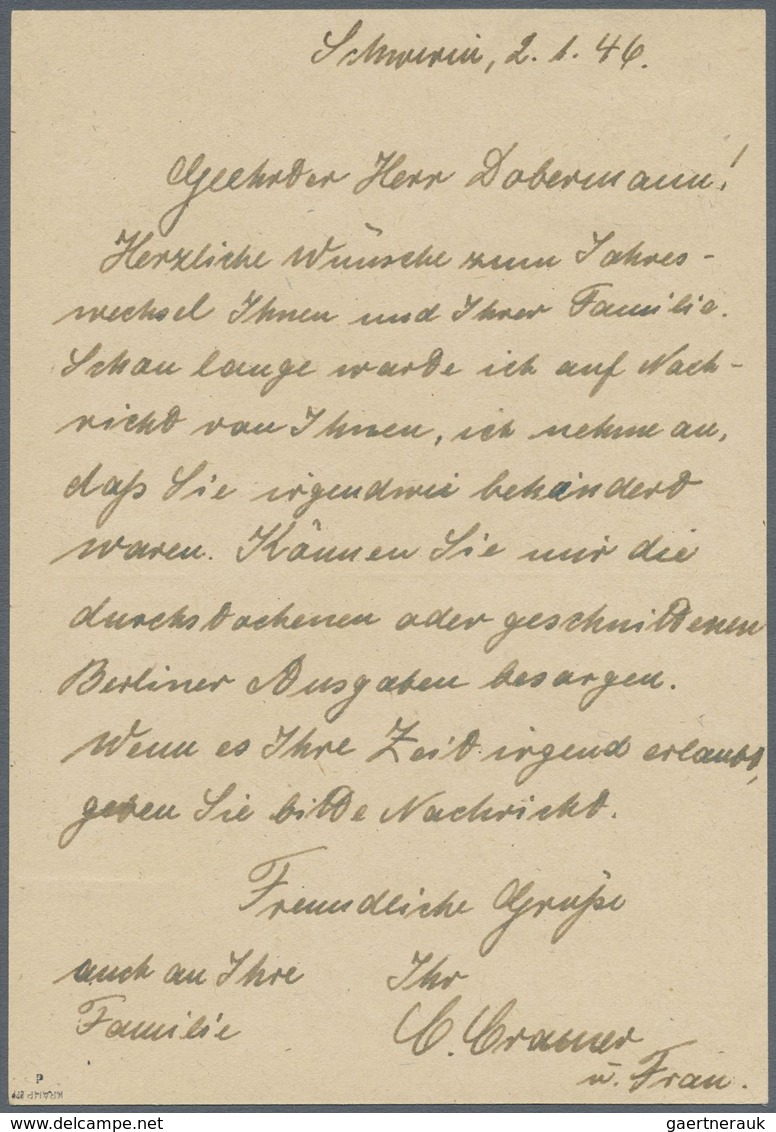 Schwerin, 2.1.46.
Geehrter Herr Dobermann!
Herzliche Wünsche zum Jahres-
wechsel Ihnen und Ihrer Familie.
Schon lange warte ich auf Nach-
richt von Ihnen, ich nehme an,
daß Sie irgendwie behindert
waren. Können Sie mir die
durchstochenen oder geschnittenen
Berliner Ausgaben besorgen.
Wenn es Ihre Zeit irgend erlaubt,
geben Sie bitte Nachricht.
Freundliche Grüße
auch an Ihre Ihr
Familie C. Cramer
u. Frau.
KRAMP BPP
gaertnerauk